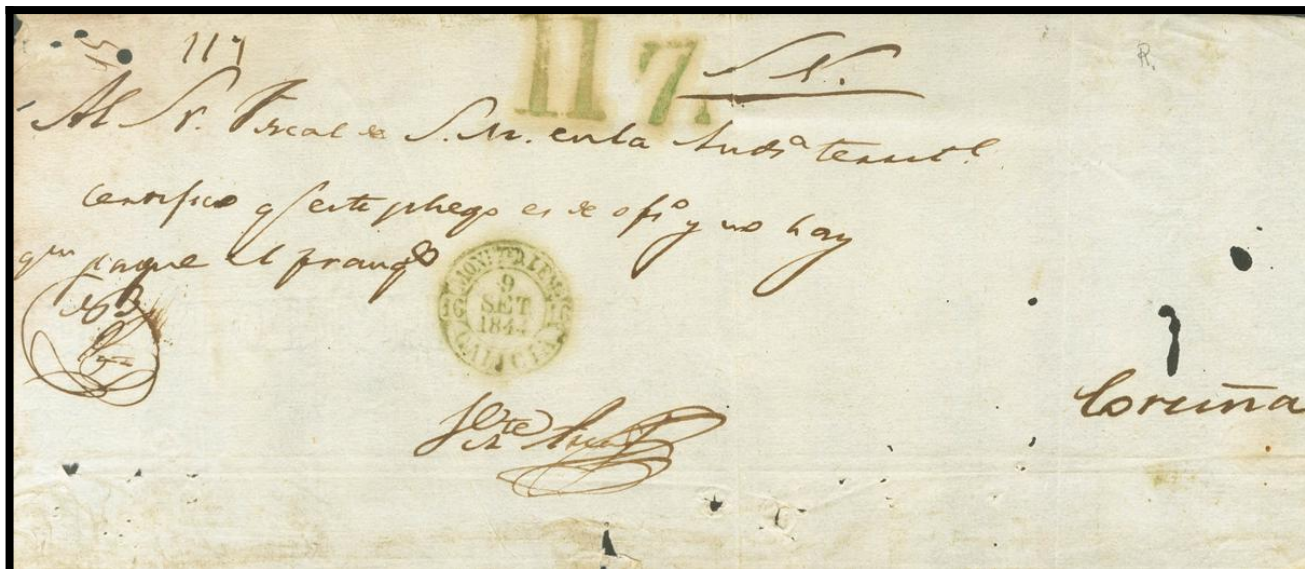 117
11 7.
S. N.
R.
Al Sr. Fiscal de S. M. en la Auda territl.
Certifico q este pliego es de ofo y no hay
qn pague el franqo
MONFTE DE LEMOS
9
SET
1844
GALICIA
Coruña